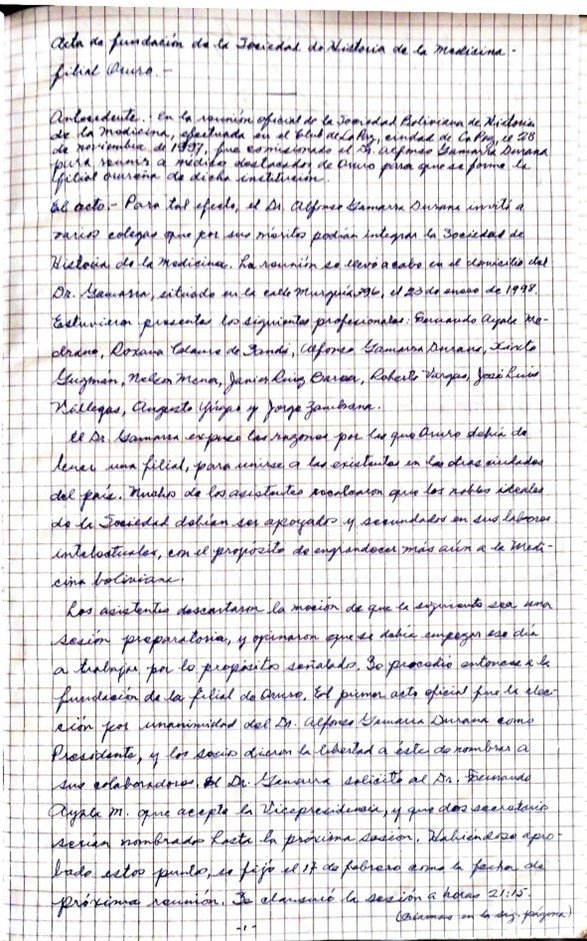 Acta de fundación de la Sociedad de Historia de la Medicina -
filial Oruro. -
Antecedente.: En la reunión oficial de la Sociedad Boliviana de Historia
de la Medicina, efectuada en el Club de La Paz, ciudad de La Paz, el 28
de noviembre de 1997, fue comisionado el Dr. Alfonso Gamarra Durana
para reunir a médicos destacados de Oruro para que se forme la
filial orureña de dicha institución.
El acto.- Para tal efecto, el Dr. Alfonso Gamarra Durana invitó a
varios colegas que por sus méritos podían integrar la Sociedad de
Historia de la Medicina. La reunión se llevó a cabo en el domicilio del
Dr. Gamarra, situado en la calle Murguía 396, el 23 de enero de 1998.
Estuvieron presentes los siguientes profesionales: Fernando Ayala Me-
drano, Roxana de Alfonso Gamarra Durana,
Guzmán, Nelson Mena, Javier Ruiz Roberto Vargas, José Luis
Villegas, Augusto y Jorge Zambrana.
El Dr. Gamarra expuso las razones por las que Oruro debía de
tener una filial, para unirse a las existentes en las otras ciudades
del país. Muchos de los asistentes recalcaron que los nobles ideales
de la Sociedad debían ser apoyados y secundados en sus labores
intelectuales, con el propósito de engrandecer más aún a la Medi-
cina boliviana.
Los asistentes descartaron la moción de que la siguiente sea una
sesión preparatoria, y opinaron que se debía empezar ese día
a trabajar por lo propósitos señalados. Se procedió entonces a la
fundación de la filial de Oruro. El primer acto oficial fue la elec-
ción por unanimidad del Dr. Alfonso Gamarra Durana como
Presidente, y los socios dieron la libertad a éste de nombrar a
sus colaboradores. El Dr. Gamarra solicitó al Dr. Fernando
Ayala M. que acepte la Vicepresidencia, y que dos secretarios
serían nombrados hasta la próxima sesión. Habiéndose apro-
bado estos puntos, se fijó el 17 de febrero como la fecha de
próxima reunión. Se clausuró la sesión a horas 21:15.
(Firmas en la sig. página)
-1-